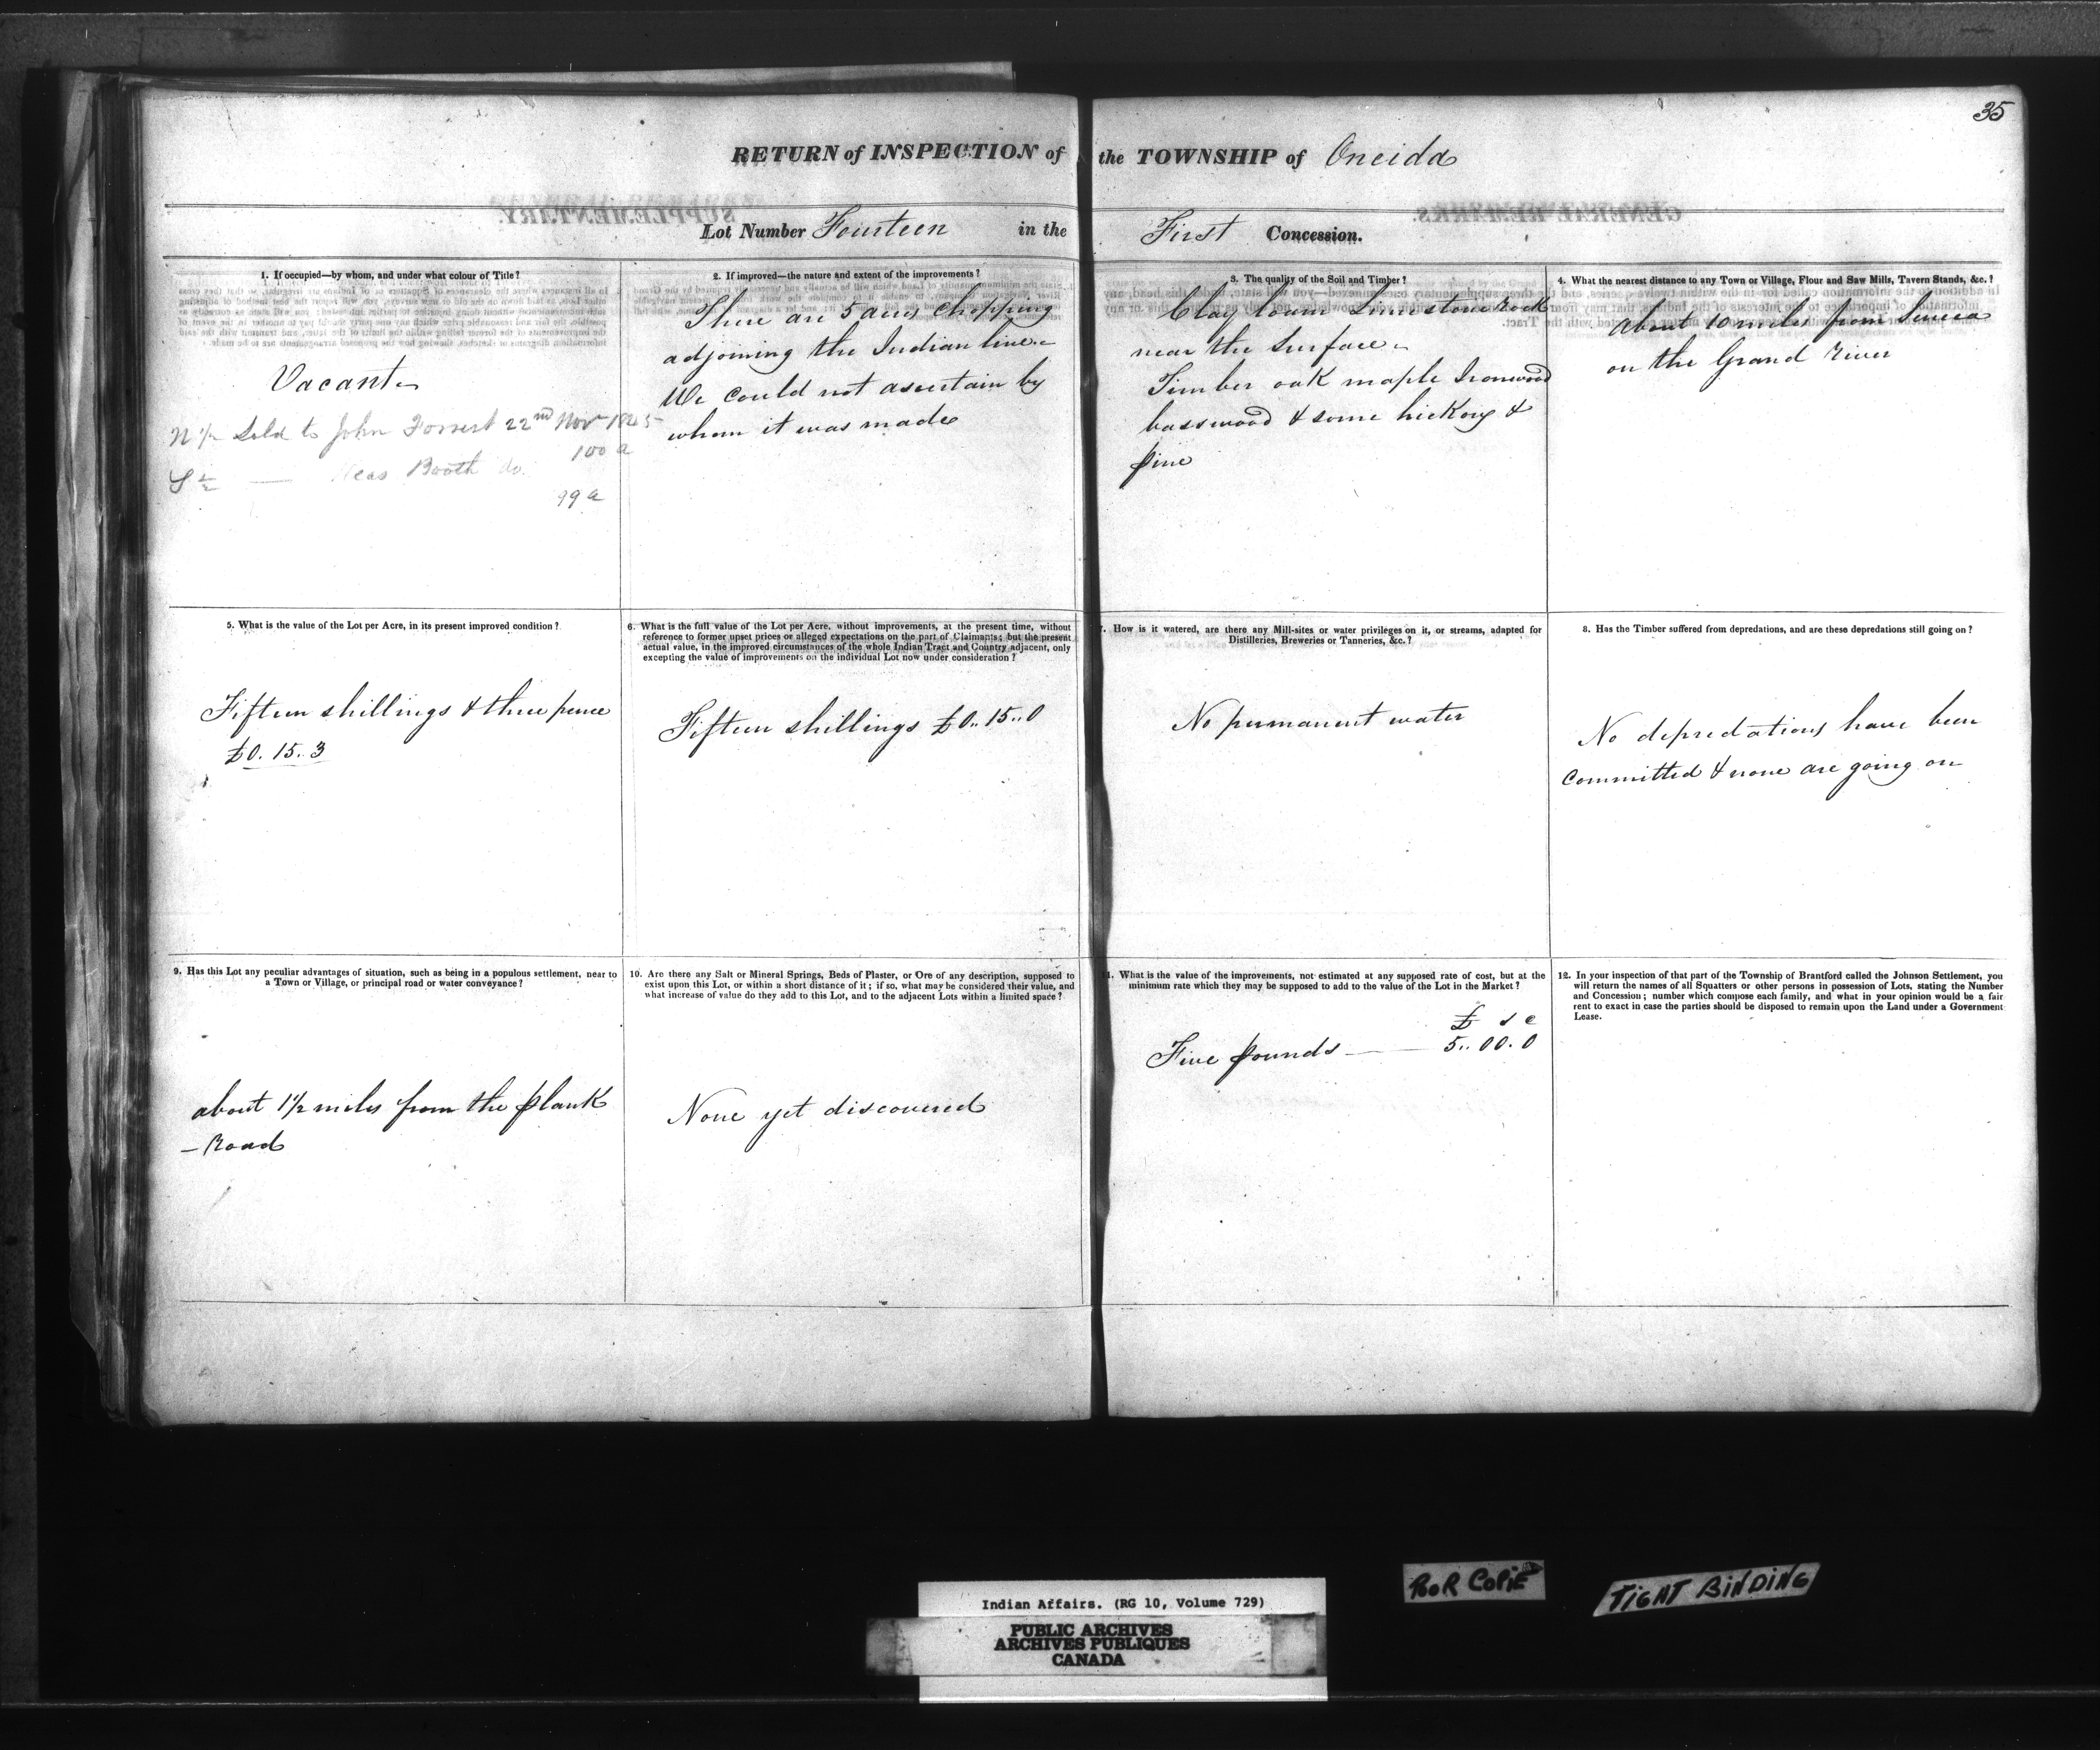 35
RETURN of INSPECTION of the TOWNSHIP of Oneida
Lot Number Fourteen in the First Concession.
1. If occupied—by whom, and under what colour of Title?
Vacant
N 1/2 Sold to John Forrest 22nd Nov 1845
100 a
S 1/2 — Booth do.
99 a
2. If improved—the nature and extent of the improvements?
There are 5 acres Chopping
adjoining the Indian line
We could not ascertain by
whom it was made
3. The quality of the Soil and Timber?
Clay loam Limestone Rock
near the Surface
Timber oak maple Ironwood
basswood & some hickory &
pine
4. What the nearest distance to any Town or Village, Flour and Saw Mills, Tavern Stands, &c.?
about 10 miles from Seneca
on the Grand River
5. What is the value of the Lot per Acre, in its present improved condition?
Fifteen shillings & three pence
£0. 15.. 3
6. What is the full value of the Lot per Acre, without improvements, at the present time, without
reference to former upset prices or alleged expectations on the part of Claimants; but the present
actual value, in the improved circumstances of the whole Indian Tract and Country adjacent, only
excepting the value of improvements on the individual Lot now under consideration?
Fifteen shillings £0.. 15.. 0
7. How is it watered, are there any Mill-sites or water privileges on it, or streams, adapted for
Distilleries, Breweries or Tanneries, &c.?
No permanent water
8. Has the Timber suffered from depredations, and are these depredations still going on?
No depredations have been
committed & none are going on
9. Has this Lot any peculiar advantages of situation, such as being in a populous settlement, near to
a Town or Village, or principal road or water conveyance?
about 1 1/2 miles from the plank
– Road
10. Are there any Salt or Mineral Springs, Beds of Plaster, or Ore of any description, supposed to
exist upon this Lot, or within a short distance of it; if so, what may be considered their value, and
what increase of value do they add to this Lot, and to the adjacent Lots within a limited space?
None yet discovered
11. What is the value of the improvements, not estimated at any supposed rate of cost, but at the
minimum rate which they may be supposed to add to the value of the Lot in the Market?
£ s
Five pounds — 5.. 00. 0
12. In your inspection of that part of the Township of Brantford called the Johnson Settlement, you
will return the names of all Squatters or other persons in possession of Lots, stating the Number
and Concession; number which compose each family, and what in your opinion would be a fair
rent to exact in case the parties should be disposed to remain upon the Land under a Government
Lease.
POOR COPIE
TIGHT BINDING
Indian Affairs. (RG 10, Volume 729)
PUBLIC ARCHIVES
ARCHIVES PUBLIQUES
CANADA